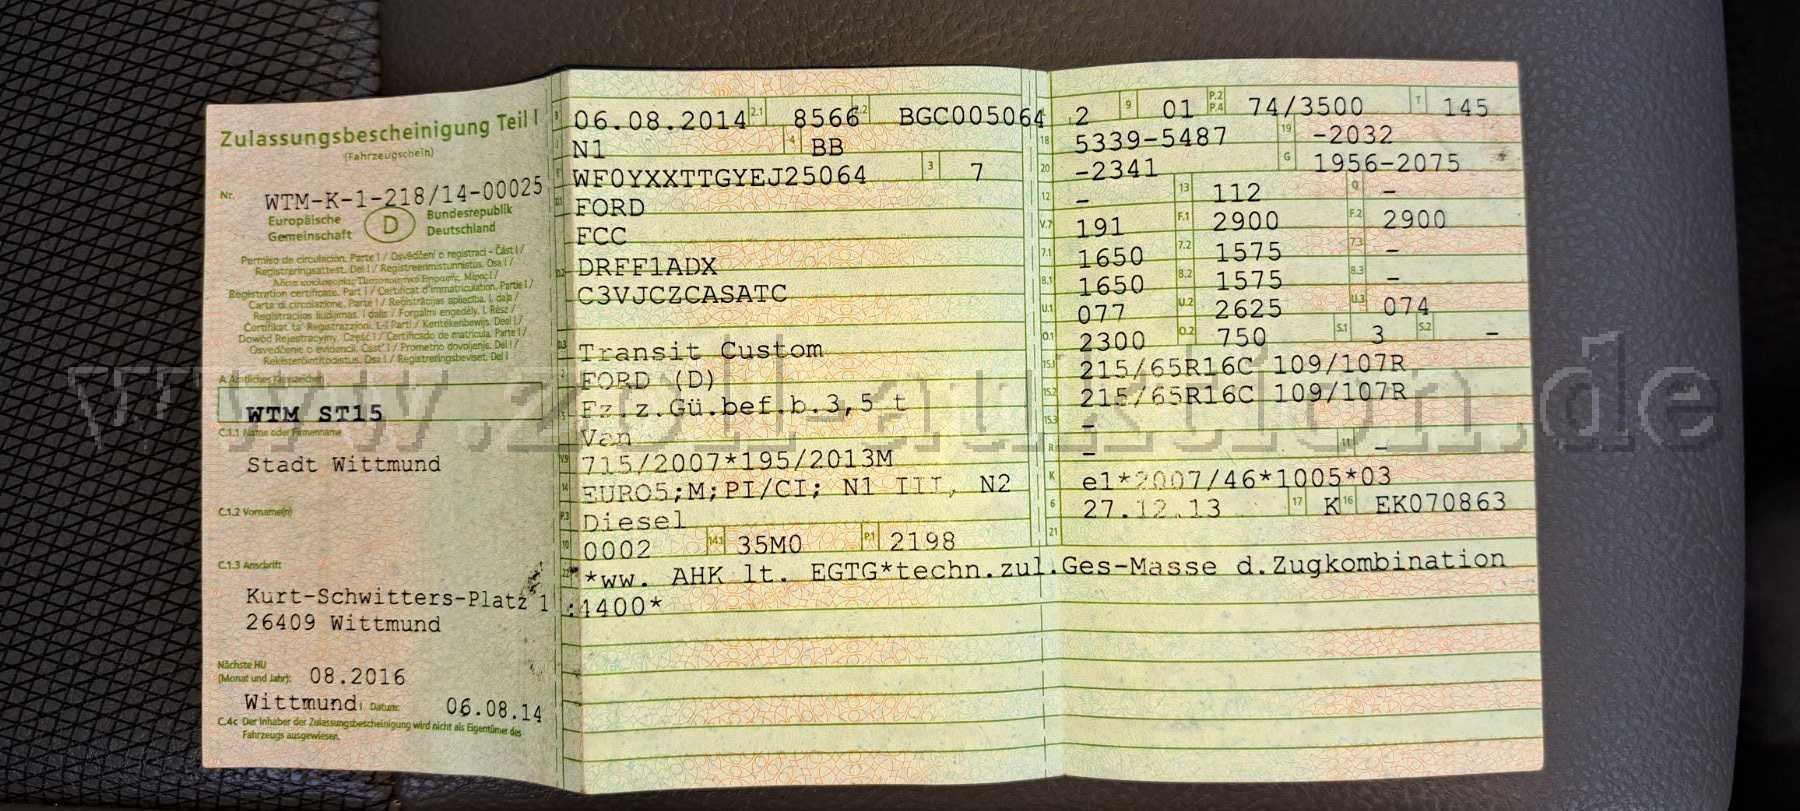 Zulassungsbescheinigung Teil I
(Fahrzeugschein)
Nr. WTM-K-1-218/14-00025
Europäische Gemeinschaft D Bundesrepublik Deutschland
Permiso de circulación. Parte I / Osvědčení o registraci - Část I /
Registreringsattest. Del I / Registreerimistunnistus. Osa I /
Registration certificate. Part I / Certificat d'immatriculation. Partie I /
Carta di circolazione. Parte I / Reģistrācijas apliecība. I. daļa /
Registracijos liudijimas. I dalis / Forgalmi engedély. I. Rész /
Ċertifikat ta' Reġistrazzjoni. L-I Parti / Kentekenbewijs. Deel I /
Dowód Rejestracyjny. Część I / Certificado de matrícula. Parte I /
Osvedčenie o evidencii. Časť I / Prometno dovoljenje. Del I /
Rekisteröintitodistus. Osa I / Registreringsbeviset. Del I
A Amtliches Kennzeichen
WTM ST15
C.1.1 Name oder Firmenname
Stadt Wittmund
C.1.2 Vorname(n)
C.1.3 Anschrift
Kurt-Schwitters-Platz 1
26409 Wittmund
Nächste HU
(Monat und Jahr): 08.2016
Wittmund Datum: 06.08.14
C.4c Der Inhaber der Zulassungsbescheinigung wird nicht als Eigentümer des
Fahrzeugs ausgewiesen.
06.08.2014 2.1 8566 2.2 BGC005064
N1 4 BB
WF0YXXTTGYEJ25064 3 7
FORD
FCC
DRFF1ADX
C3VJCZCASATC
D.3 Transit Custom
2 FORD (D)
5 Fz.z.Gü.bef.b.3,5 t
Van
V.9 715/2007*195/2013M
14 EURO5;M;PI/CI; N1 III, N2
P.3 Diesel
10 0002 14.1 35M0 P.1 2198
22 *ww. AHK lt. EGTG*techn.zul.Ges-Masse d.Zugkombination
:1400*
2 9 01 P.2 P.4 74/3500 T 145
18 5339-5487 19 -2032
20 -2341 G 1956-2075
12 - 13 112 Q -
V.7 191 F.1 2900 F.2 2900
7.1 1650 7.2 1575 7.3 -
8.1 1650 8.2 1575 8.3 -
U.1 077 U.2 2625 U.3 074
O.1 2300 O.2 750 S.1 3 S.2 -
15.1 215/65R16C 109/107R
15.2 215/65R16C 109/107R
15.3 -
R - 11 -
K e1*2007/46*1005*03
6 27.12.13 17 K 16 EK070863
21
www.zoll-auktion.de